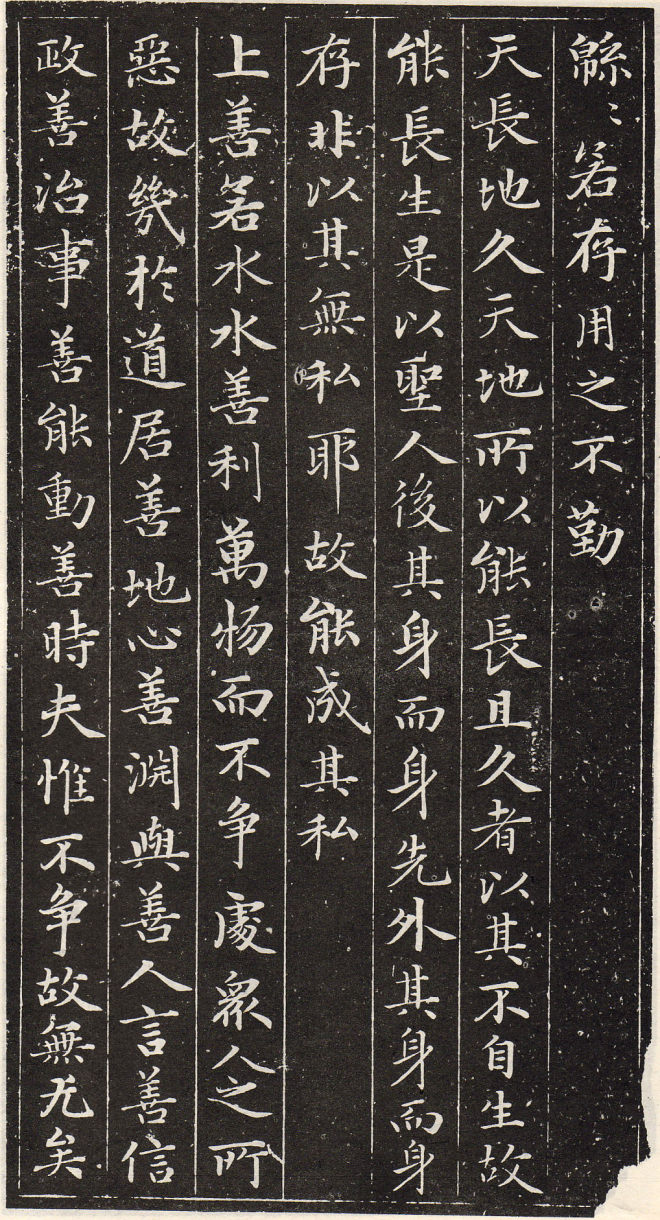 緜〻若存用之不勤
天長地久天地所以能長且久者以其不自生故
能長生是以聖人後其身而身先外其身而身
存非以其無私耶故能成其私
上善若水水善利萬物而不爭處眾人之所
惡故幾於道居善地心善淵與善人言善信
政善治事善能動善時夫惟不爭故無尤矣